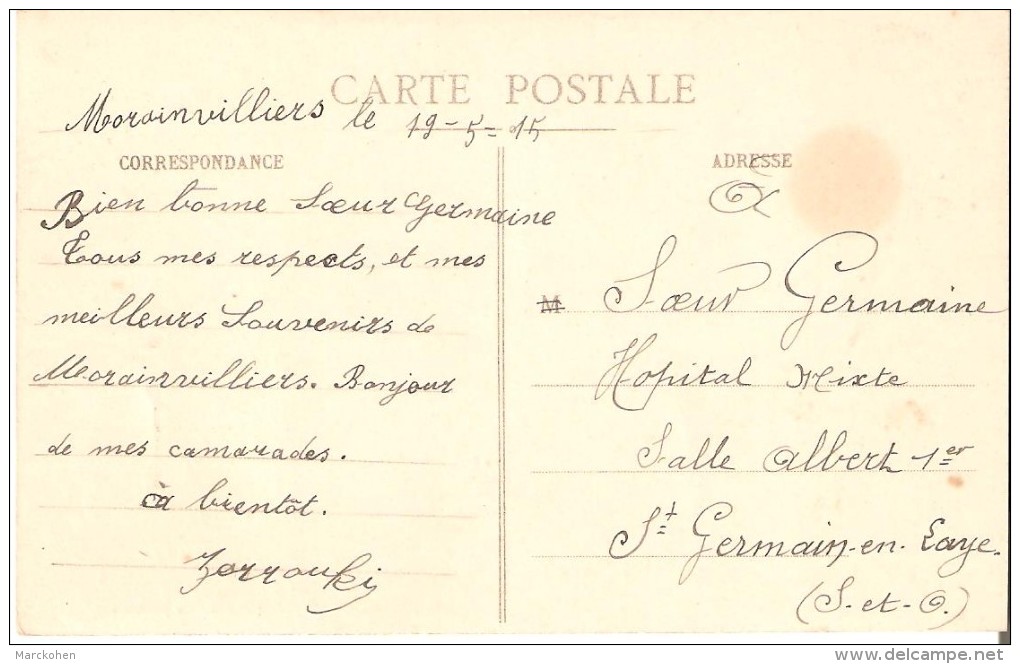 CARTE POSTALE
Morainvilliers le 19-5=15
CORRESPONDANCE
Bien bonne Sœur Germaine
Tous mes respects, et mes
meilleurs Souvenirs de
Morainvilliers. Bonjour
de mes camarades.
à bientôt.
Zorrouki
ADRESSE
M
Sœur Germaine
Hopital Mixte
Salle Albert 1er
St Germain-en-Laye.
(S-et-O.)
Marckohen
delcampe.net